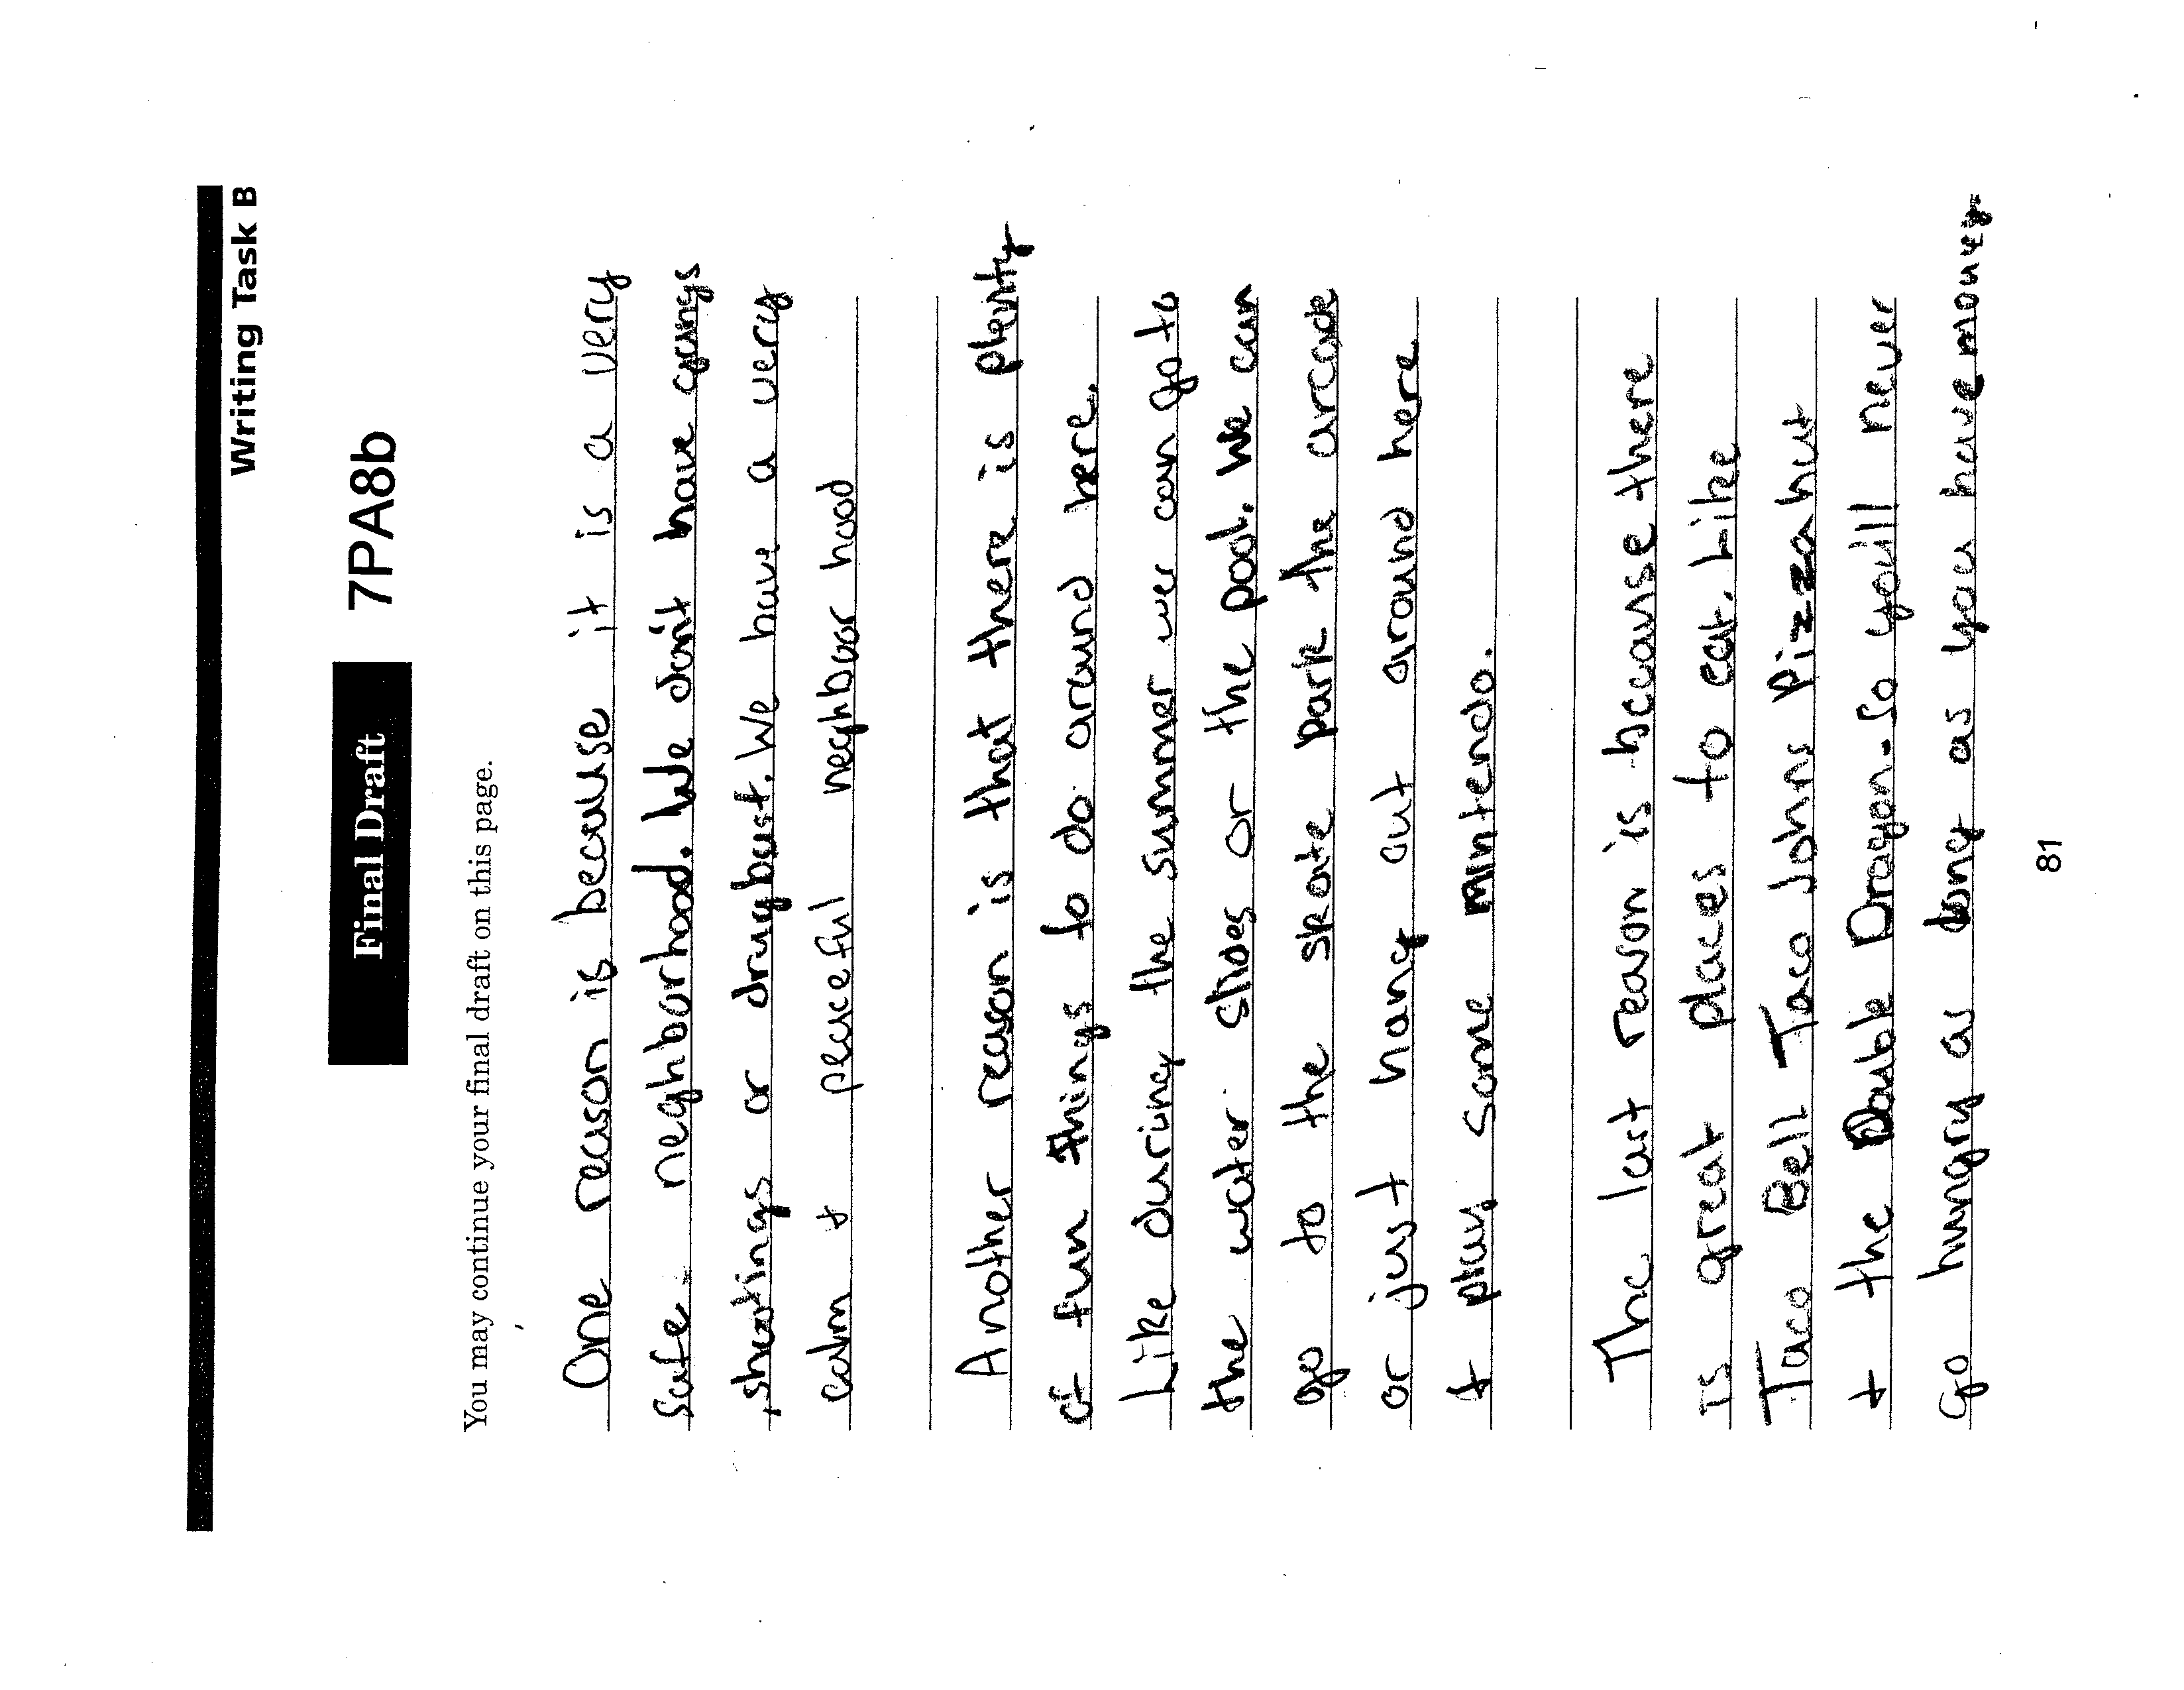 Writing Task B
Final Draft 7PA8b
You may continue your final draft on this page.
One reason is because it is a very
safe neghborhood. We don't have gangs
, shootings or drug bust. We have a very
calm + peaceful neghboor hood
Another reason is that there is plenty
of fun things to do around here.
Like during the summer we can go to
the water slides or the pool. We can
go to the skate park the arcade
or just hang out around here
+ play some Nintendo.
The last reason is because there
is great places to eat. Like
Taco Bell Taco Johns Pizza hut
+ the Double Dragon. So you'll never
go hungry as long as you have money.
81